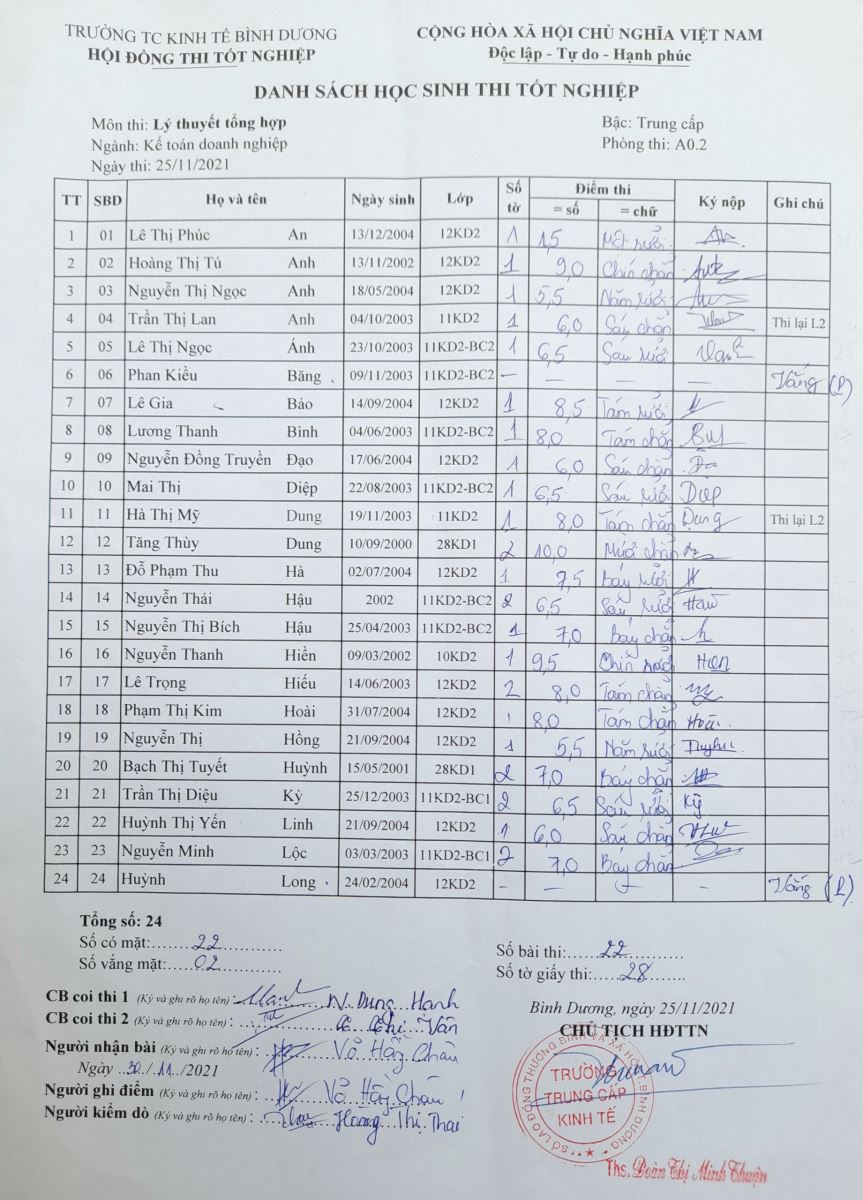 TRƯỜNG TC KINH TẾ BÌNH DƯƠNG
HỘI ĐỒNG THI TỐT NGHIỆP
CỘNG HÒA XÃ HỘI CHỦ NGHĨA VIỆT NAM
Độc lập - Tự do - Hạnh phúc
DANH SÁCH HỌC SINH THI TỐT NGHIỆP
Môn thi: Lý thuyết tổng hợp
Ngành: Kế toán doanh nghiệp
Ngày thi: 25/11/2021
Bậc: Trung cấp
Phòng thi: A0.2
TT SBD Họ và tên Ngày sinh Lớp Số tờ Điểm thi = số = chữ Ký nộp Ghi chú
1 01 Lê Thị Phúc An 13/12/2004 12KD2 1 1,5 Một rưỡi
2 02 Hoàng Thị Tú Anh 13/11/2002 12KD2 1 9,0 Chín chẵn
3 03 Nguyễn Thị Ngọc Anh 18/05/2004 12KD2 1 5,5 Năm rưỡi
4 04 Trần Thị Lan Anh 04/10/2003 11KD2 1 6,0 Sáu chẵn Thi lại L2
5 05 Lê Thị Ngọc Ánh 23/10/2003 11KD2-BC2 1 6,5 Sáu rưỡi
6 06 Phan Kiều Băng 09/11/2003 11KD2-BC2 – – – – Vắng
7 07 Lê Gia Bảo 14/09/2004 12KD2 1 8,5 Tám rưỡi
8 08 Lương Thanh Bình 04/06/2003 11KD2-BC2 1 8,0 Tám chẵn
9 09 Nguyễn Đồng Truyền Đạo 17/06/2004 12KD2 1 6,0 Sáu chẵn
10 10 Mai Thị Diệp 22/08/2003 11KD2-BC2 1 6,5 Sáu rưỡi Diệp
11 11 Hà Thị Mỹ Dung 19/11/2003 11KD2 1 8,0 Tám chẵn Dung Thi lại L2
12 12 Tăng Thùy Dung 10/09/2000 28KD1 2 10,0 Mười chẵn
13 13 Đỗ Phạm Thu Hà 02/07/2004 12KD2 1 7,5 Bảy rưỡi
14 14 Nguyễn Thái Hậu 2002 11KD2-BC2 2 6,5 Sáu rưỡi
15 15 Nguyễn Thị Bích Hậu 25/04/2003 11KD2-BC2 1 7,0 Bảy chẵn
16 16 Nguyễn Thanh Hiền 09/03/2002 10KD2 1 9,5 Chín rưỡi Hiền
17 17 Lê Trọng Hiếu 14/06/2003 12KD2 2 8,0 Tám chẵn
18 18 Phạm Thị Kim Hoài 31/07/2004 12KD2 1 8,0 Tám chẵn Hoài
19 19 Nguyễn Thị Hồng 21/09/2004 12KD2 1 5,5 Năm rưỡi
20 20 Bạch Thị Tuyết Huỳnh 15/05/2001 28KD1 2 7,0 Bảy chẵn
21 21 Trần Thị Diệu Kỳ 25/12/2003 11KD2-BC1 2 6,5 Sáu rưỡi Kỳ
22 22 Huỳnh Thị Yến Linh 21/09/2004 12KD2 1 6,0 Sáu chẵn
23 23 Nguyễn Minh Lộc 03/03/2003 11KD2-BC1 2 7,0 Bảy chẵn
24 24 Huỳnh Long 24/02/2004 12KD2 – – – – Vắng
Tổng số: 24
Số có mặt:......22
Số vắng mặt:......02
Số bài thi:......22
Số tờ giấy thi:......28
CB coi thi 1 (Ký và ghi rõ họ tên): Dung Hạnh
CB coi thi 2 (Ký và ghi rõ họ tên): Vân
Người nhận bài (Ký và ghi rõ họ tên): Võ Hồng Châu
Ngày 30/11/2021
Người ghi điểm (Ký và ghi rõ họ tên): Võ Hồng Châu
Người kiểm dò (Ký và ghi rõ họ tên): Hoàng Thị Thái
Bình Dương, ngày 25/11/2021
CHỦ TỊCH HĐTTN
SỞ LAO ĐỘNG THƯƠNG BINH VÀ XÃ HỘI BÌNH DƯƠNG
TRƯỜNG
TRUNG CẤP
KINH TẾ
Ths. Đoàn Thị Minh Thuận